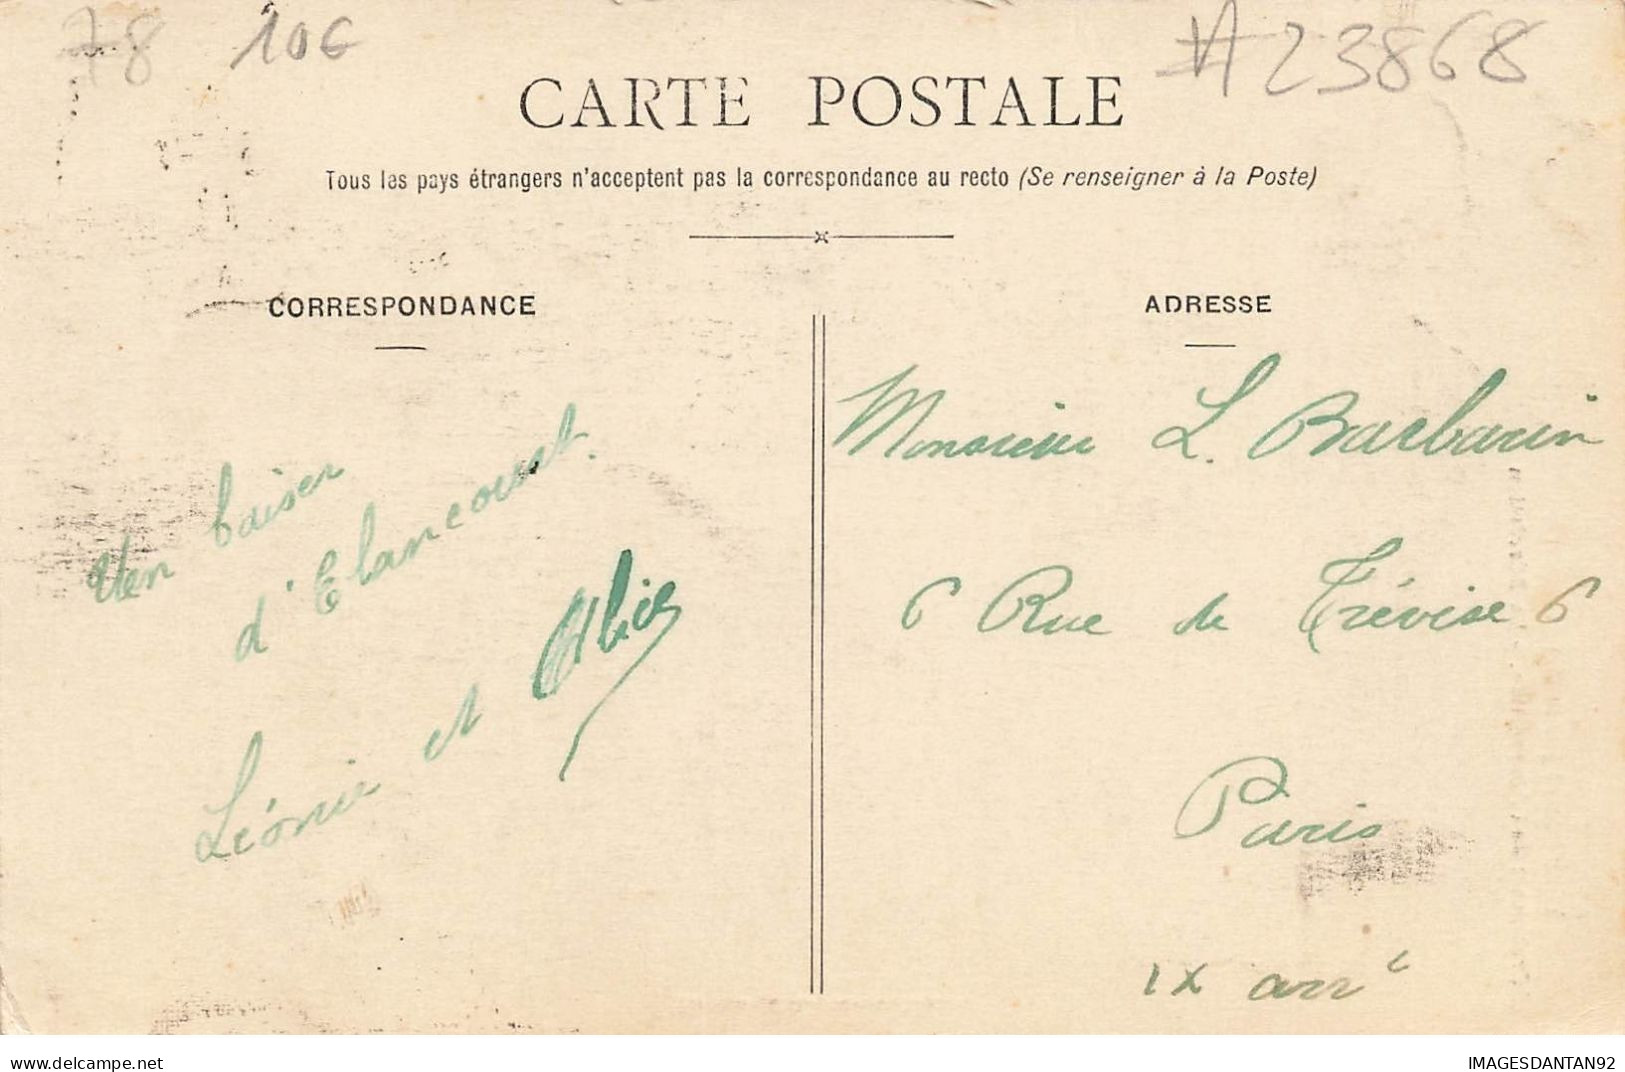 78 10€
#23868
CARTE POSTALE
Tous les pays étrangers n'acceptent pas la correspondance au recto (Se renseigner à la Poste)
CORRESPONDANCE
Un baiser
d'Elancourt.
Léonie et
ADRESSE
Monsieur L. Barbarin
6 Rue de Trévise 6
Paris
IX arrt
www.delcampe.net
IMAGESDANTAN92